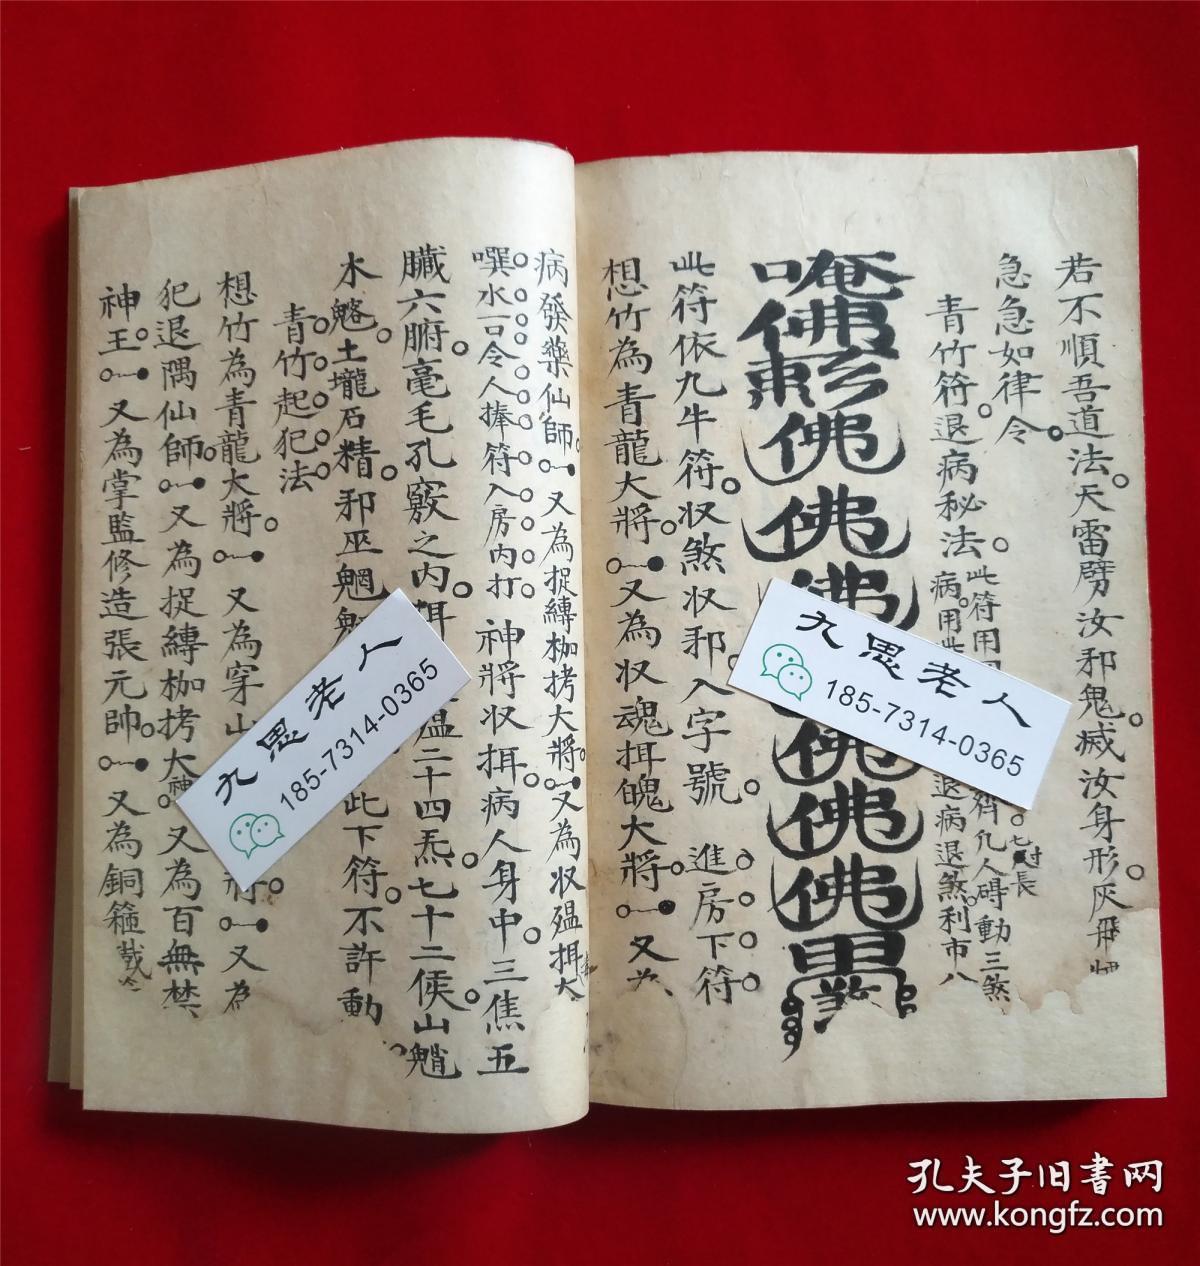 若不順吾道法天雷劈汝邪鬼滅汝身形灰飛
急急如律令
青竹符退病秘法
此符用
病用此
九人碍動三煞
七寸長
退病退煞利市八
唵佛
佛
佛
佛
佛
佛
此符依九牛符收煞收邪入字號 進房下符
想竹為青龍大將 又為收魂押魄大將 又
病發藥仙師 又為捉縛枷拷大將 又為收瘟押大
噀水一口令人捧符入房内打 神將收押病人身中三焦五
臟六腑毫毛孔竅之内
瘟二十四炁七十二候山魈
木魅土壠石精邪巫
此下符不許動
青竹起犯法
想竹為青龍大將 又為穿山
將 又為
犯退隅仙師 又為捉縛枷拷大神 又為百無禁
神王 又為掌監修造張元帥 又為銅箍
九思老人
185-7314-0365
九思老人
185-7314-0365
孔夫子旧书网
www.kongfz.com